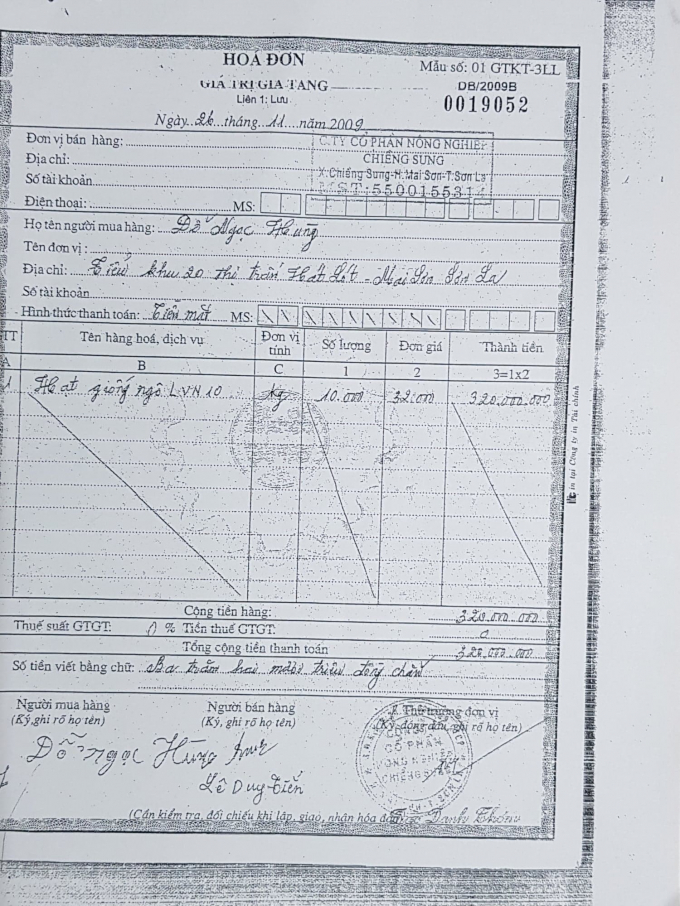 HOÁ ĐƠN
Mẫu số: 01 GTKT-3LL
GIÁ TRỊ GIA TĂNG
DB/2009B
Liên 1: Lưu
0019052
Ngày 26 tháng 11 năm 2009
Đơn vị bán hàng: C.TY CỔ PHẦN NÔNG NGHIỆP
Địa chỉ: CHIỀNG SUNG
Số tài khoản X.Chiềng Sung-H.Mai Sơn-T.Sơn La
MST:5500155314
Điện thoại: MS:
Họ tên người mua hàng: Đỗ Ngọc Hùng
Tên đơn vị:
Địa chỉ: Tiểu khu 20 thị trấn Hát Lót - Mai Sơn Sơn La
Số tài khoản
Hình thức thanh toán: Tiền mặt MS:
TT Tên hàng hoá, dịch vụ Đơn vị tính Số lượng Đơn giá Thành tiền
A B C 1 2 3=1x2
1 Hạt giống ngô LVN 10 kg 10.000 32.000 320.000.000
Cộng tiền hàng: 320.000.000
Thuế suất GTGT: 0 % Tiền thuế GTGT: 0
Tổng cộng tiền thanh toán 320.000.000
Số tiền viết bằng chữ: Ba trăm hai mươi triệu đồng chẵn
Người mua hàng Người bán hàng Thủ trưởng đơn vị
(Ký,ghi rõ họ tên) (Ký, ghi rõ họ tên) (Ký,đóng dấu, ghi rõ họ tên)
CỔ PHẦN
NÔNG NGHIỆP
CHIỀNG SUNG
Đỗ Ngọc Hùng
Lê Duy Tiến
(Cần kiểm tra, đối chiếu khi lập, giao, nhận hóa đơn
Danh Thống
In tại Công ty in Tài chính